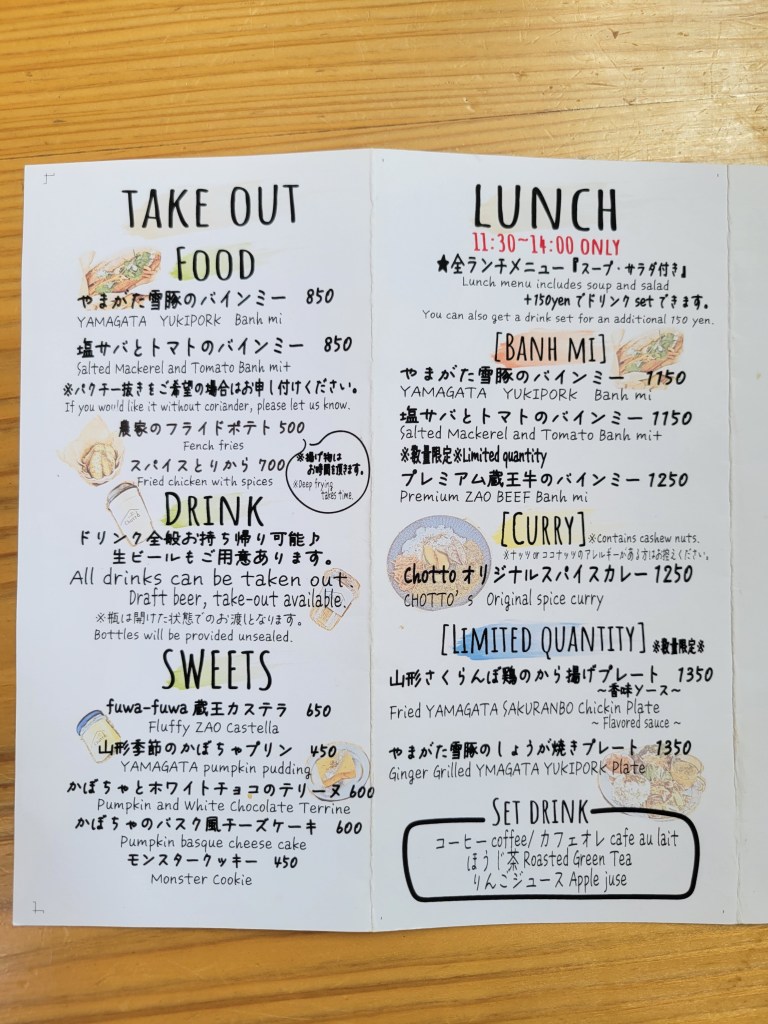 TAKE OUT
FOOD
やまがた雪豚のバインミー 850
YAMAGATA YUKIPORK Banh mi
塩サバとトマトのバインミー 850
Salted Mackerel and Tomato Banh mi+
※パクチー抜きをご希望の場合はお申し付けください。
If you would like it without coriander, please let us know.
農家のフライドポテト 500
Fench fries
スパイスとりから 700
Fried chicken with spices
※揚げ物は
お時間を頂きます。
※Deep frying
takes time.
DRINK
ドリンク全般お持ち帰り可能♪
生ビールもご用意あります。
All drinks can be taken out.
Draft beer, take-out available.
※瓶は開けた状態でのお渡しとなります。
Bottles will be provided unsealed.
SWEETS
fuwa-fuwa 蔵王カステラ 650
Fluffy ZAO Castella
山形季節のかぼちゃプリン 450
YAMAGATA pumpkin pudding
かぼちゃとホワイトチョコのテリーヌ 600
Pumpkin and White Chocolate Terrine
かぼちゃのバスク風チーズケーキ 600
Pumpkin basque cheese cake
モンスタークッキー 450
Monster Cookie
LUNCH
11:30~14:00 ONLY
★全ランチメニュー『スープ・サラダ付き』
Lunch menu includes soup and salad
+150yen でドリンク set できます。
You can also get a drink set for an additional 150 yen.
[BANH MI]
やまがた雪豚のバインミー 1150
YAMAGATA YUKIPORK Banh mi
塩サバとトマトのバインミー 1150
Salted Mackerel and Tomato Banh mi+
※数量限定※Limited quantity
プレミアム蔵王牛のバインミー 1250
Premium ZAO BEEF Banh mi
[CURRY] ※Contains cashew nuts.
※ナッツ or ココナッツのアレルギーがある方はお控えください。
Chotto オリジナルスパイスカレー 1250
CHOTTO's Original spice curry
[LIMITED QUANTITY] ※数量限定※
山形さくらんぼ鶏のから揚げプレート 1350
~香味ソース~
Fried YAMAGATA SAKURANBO Chickin Plate
~ Flavored sauce ~
やまがた雪豚のしょうが焼きプレート 1350
Ginger Grilled YMAGATA YUKIPORK Plate
SET DRINK
コーヒー coffee/ カフェオレ cafe au lait
ほうじ茶 Roasted Green Tea
りんごジュース Apple juse